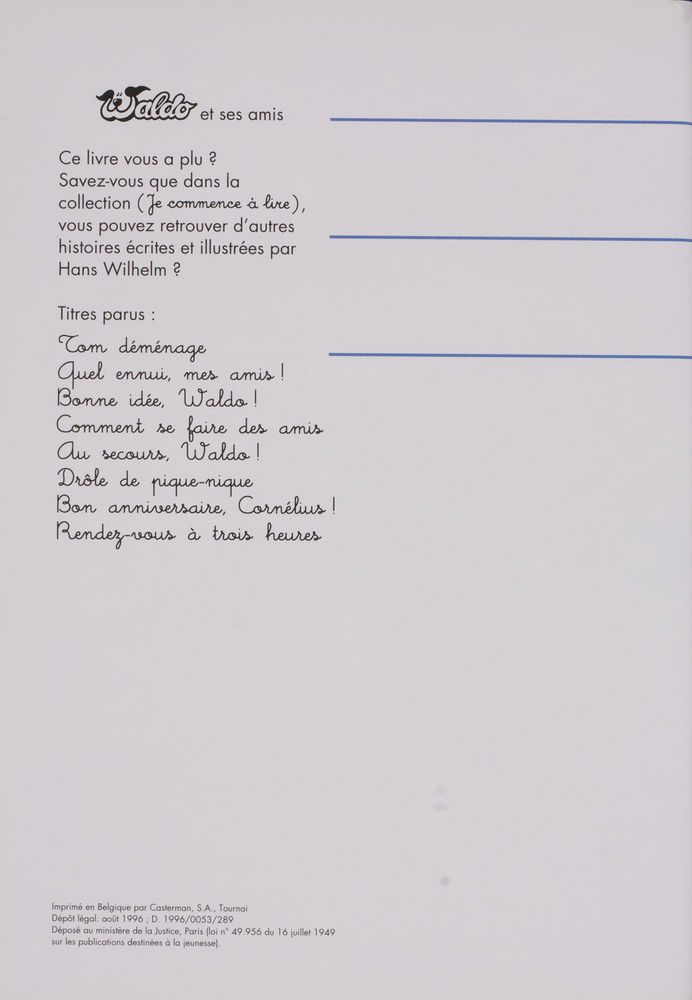 Waldo et ses amis
Ce livre vous a plu ?
Savez-vous que dans la
collection (Je commence à lire),
vous pouvez retrouver d'autres
histoires écrites et illustrées par
Hans Wilhelm ?
Titres parus :
Tom déménage
Quel ennui, mes amis !
Bonne idée, Waldo !
Comment se faire des amis
Au secours, Waldo !
Drôle de pique-nique
Bon anniversaire, Cornélius !
Rendez-vous à trois heures
Imprimé en Belgique par Casterman, S.A., Tournai
Dépôt légal: août 1996 ; D. 1996/0053/289
Déposé au ministère de la Justice, Paris (loi n° 49.956 du 16 juillet 1949
sur les publications destinées à la jeunesse).